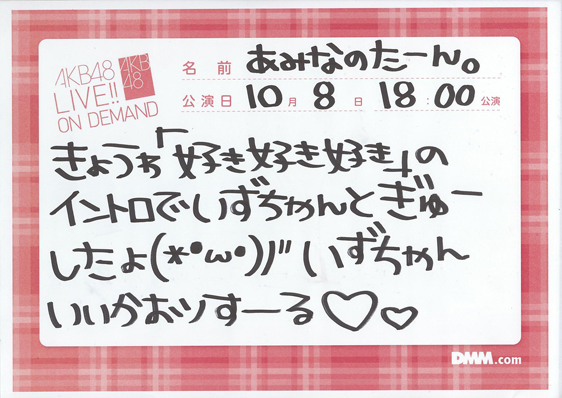 AKB48
LIVE!!
ON DEMAND
AKB
48
名前 あみなのたーん。
公演日 10月8日 18:00公演
きょうゎ「好き好き好き」の
イントロでいずちゃんとぎゅー
したよ(*•ω•)ノ" いずちゃん
いいかおりすーる♡♡
DMM.com